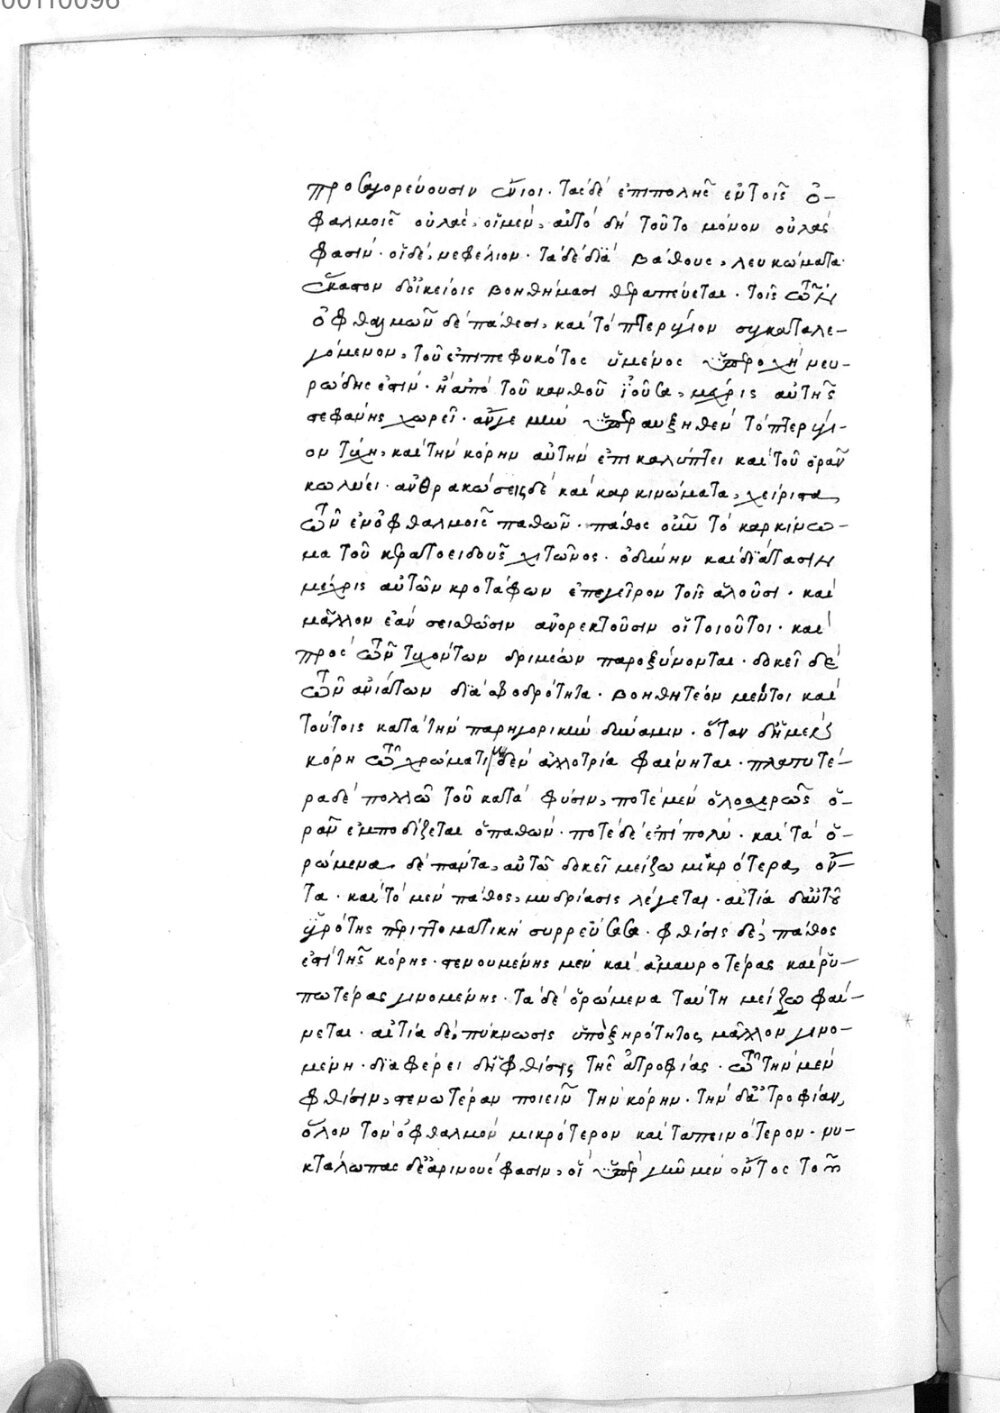 00110096
προσαγορεύουσιν ἔνιοι· τὰς δὲ ἐπιπολῆς ἐν τοῖς ὀ-
φθαλμοῖς οὐλὰς, οἱ μὲν, αὐτὸ δὴ τοῦτο μόνον οὐλάς
φασιν· οἱ δὲ, νεφέλιον· τὰ δὲ διὰ βάθους, λευκώματα·
ἕκαστον δ' οἰκείοις βοηθήμασι θεραπεύεται· τοῖς τῶν
ὀφθαλμῶν δὲ πάθεσι, καὶ τὸ πτερύγιον συγκαταλε-
γόμενον, τοῦ ἐπιπεφυκότος ὑμένος ὑπεροχὴ νευ-
ρώδης ἐστίν· ἡ ἀπὸ τοῦ κανθοῦ ἰοῦσα, μέχρις αὐτῆς
στεφάνης χωρεῖ· ἄν γε μὴν ὑπεραυξηθὲν τὸ πτερύγι-
ον τύχῃ, καὶ τὴν κόρην αὐτὴν ἐπικαλύπτει καὶ τοῦ ὁρᾶν
κωλύει· ἀνθρακώσεις δὲ καὶ καρκινώματα, χείριστα
τῶν ἐν ὀφθαλμοῖς παθῶν· πάθος οὖν τὸ καρκίνω-
μα τοῦ κερατοειδοῦς χιτῶνος· ὀδύνην καὶ διάτασιν
μέχρις αὐτῶν κροτάφων ἐπεγεῖρον τοῖς ἁλοῦσι· καὶ
μᾶλλον ἐὰν σεισθῶσιν ἀνορεκτοῦσιν οἱ τοιοῦτοι· καὶ
πρὸς τῶν τυχόντων δριμέων παροξύνονται· δοκεῖ δὲ
τῶν ἀνιάτων διὰ σφοδρότητα· βοηθητέον μέντοι καὶ
τούτοις κατὰ τὴν παρηγορικὴν δύναμιν· ὅταν δ' ἡ μὲν
κόρη τῷ χρώματι μηδὲν ἀλλοτρία φαίνηται· πλατυτέ-
ρα δὲ πολλῷ τοῦ κατὰ φύσιν, ποτὲ μὲν ὁλοσχερῶς ὁ-
ρᾶν ἐμποδίζεται ὁ παθών· ποτὲ δὲ ἐπὶ πολύ· καὶ τὰ ὁ-
ρώμενα δὲ πάντα, αὐτῷ δοκεῖ μείζω μικρότερα ὄν-
τα· καὶ τὸ μὲν πάθος, μυδρίασις λέγεται· αἰτία δ' αὐτοῦ
ὑγρότης περιττωματικὴ συρρεύσασα· φθίσις δὲ, πάθος
ἐστὶ τῆς κόρης· στενουμένης μὲν καὶ ἀμαυροτέρας καὶ ῥυ-
πωτέρας γινομένης· τὰ δὲ ὁρώμενα ταύτῃ μείζω φαί-
νεται· αἰτία δὲ, πύκνωσις ὑπὸ ξηρότητος μᾶλλον γινο-
μένη· διαφέρει δ' ἡ φθίσις τῆς ἀτροφίας· τῷ τὴν μὲν
φθίσιν, στενωτέραν ποιεῖν τὴν κόρην· τὴν δ' ἀτροφίαν,
ὅλον τὸν ὀφθαλμὸν μικρότερον καὶ ταπεινότερον· νυ-
κτάλωπας δὲ ἀρινούς φασιν, οἳ ὑπὲρ γῆν μὲν ὄντος τοῦ